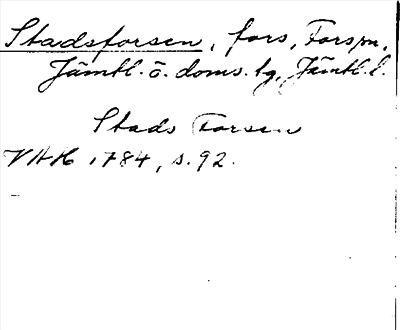 Stadsforsen, fors, Forsm,
Jämtl. ö. doms. tg, Jämtl. l.
Stads Forsen
VAH 1784, s. 92.